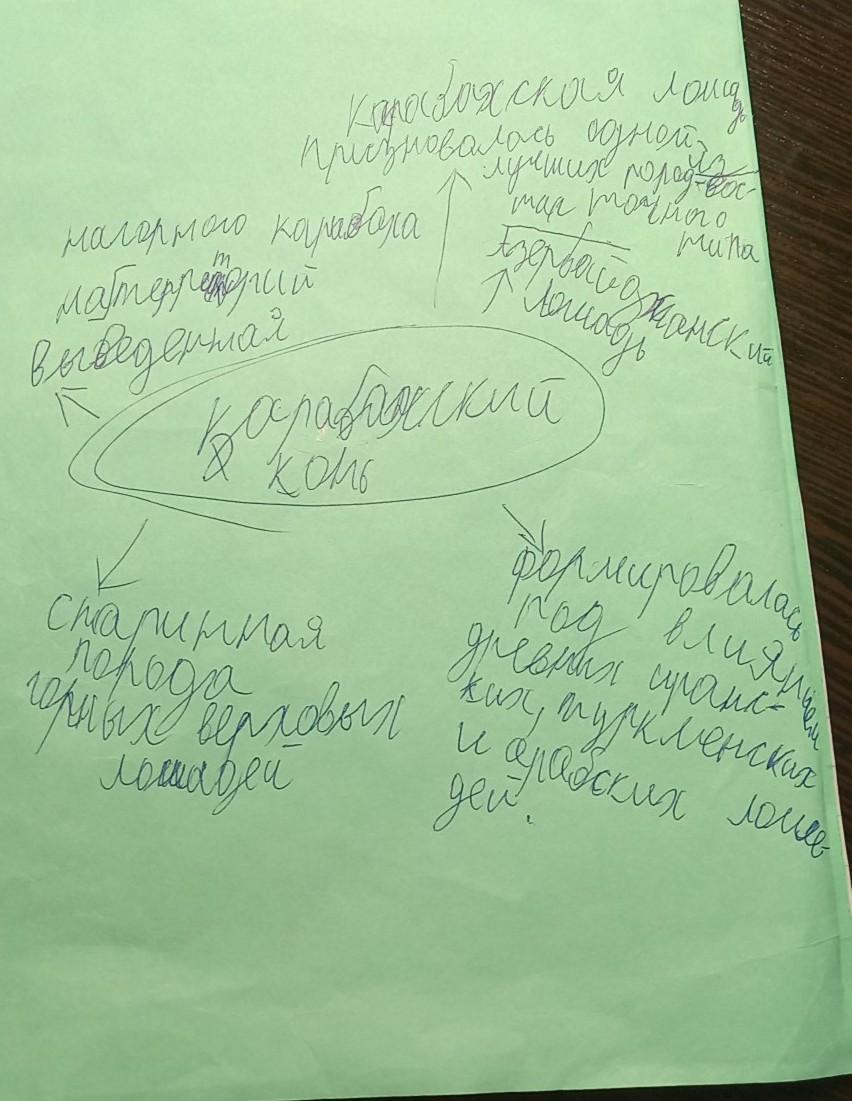 Карабахская лошадь
признавалась одной из
лучших пород вос-
точного
типа
Азербайджанский
лошадь
нагорного карабаха
выведенная
Карабахский
конь
старинная
порода
горных верховых
лошадей
формировалась
под влиянием
древних иранс-
ких, туркменских
и арабских лоша-
дей.